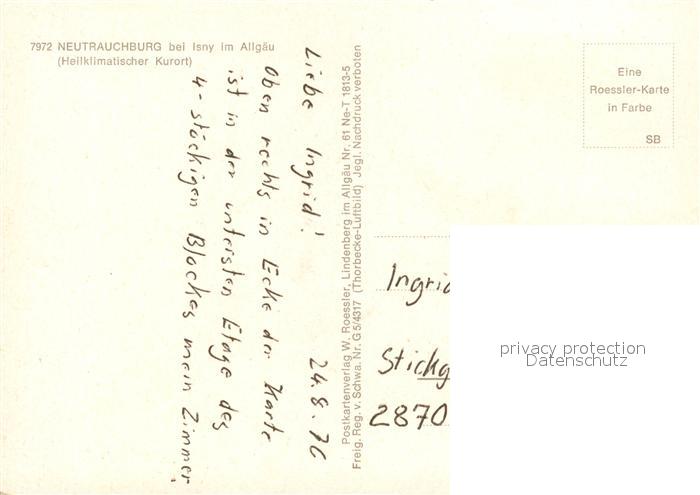 7972 NEUTRAUCHBURG bei Isny im Allgäu
(Heilklimatischer Kurort)
24.8.76
Liebe Ingrid!
Oben rechts in Ecke der Karte
ist in der untersten Etage des
4-stöckigen Blockes mein Zimmer.
Postkartenverlag W. Roessler, Lindenberg im Allgäu Nr. 61 Ne-T 1813-5
Freig. Reg. v. Schwa. Nr. G 5/4317 (Thorbecke-Luftbild) Jegl. Nachdruck verboten
Eine
Roessler-Karte
in Farbe
SB
Ingrid
Stickg
2870
privacy protection
Datenschutz